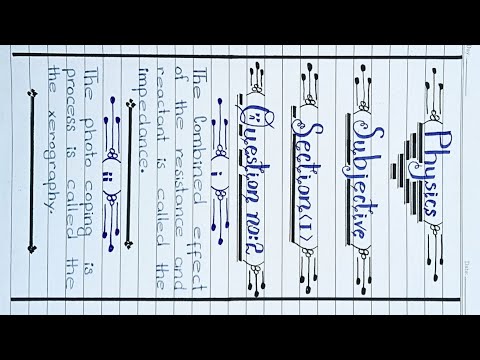 Physics
Subjective
Section (I)
Question no:2
i
The Combined effect
of the resistance and
reactant is called the
impedance.
ii
The photo coping is
process is called the
the xerography.